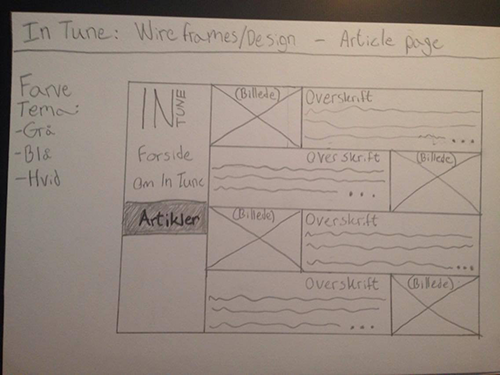 In Tune: Wireframes/Design - Article page
Farve
Tema:
-Grå
-Blå
-Hvid
IN TUNE
Forside
om In Tune
Artikler
(Billede)
Overskrift
Overskrift
(Billede)
(Billede)
Overskrift
Overskrift
(Billede)